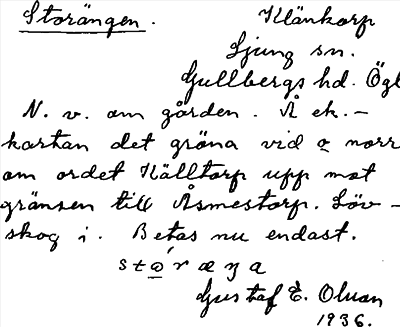 Storängen. Klänkorp
Ljung sn.
Gullbergs hd. Ögl
N. v. om gården. Å ek.-
kartan det gröna vid o norr
om ordet Källtorp upp mot
gränsen till Åsmestorp. Löv-
skog i. Betas nu endast.
Gustaf E. Olsson
1936.